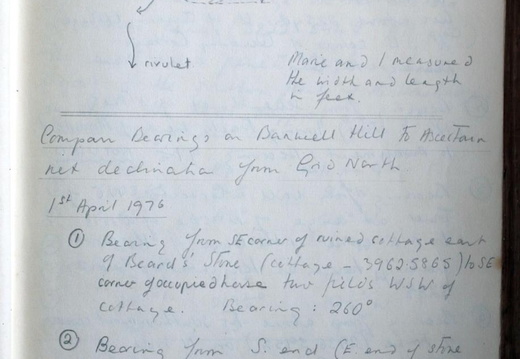 rivulet
Marie and I measured
the width and length
in feet.
Compass Bearings on Banwell Hill to Ascertain
net declination from Grid North
1st April 1976
① Bearing from SE corner of ruined cottage east
of Beard's Stone (cottage - 39625865) to SE
corner of occupied house two fields WSW of
cottage. Bearing : 260°
② Bearing from S. end (E. end of stone